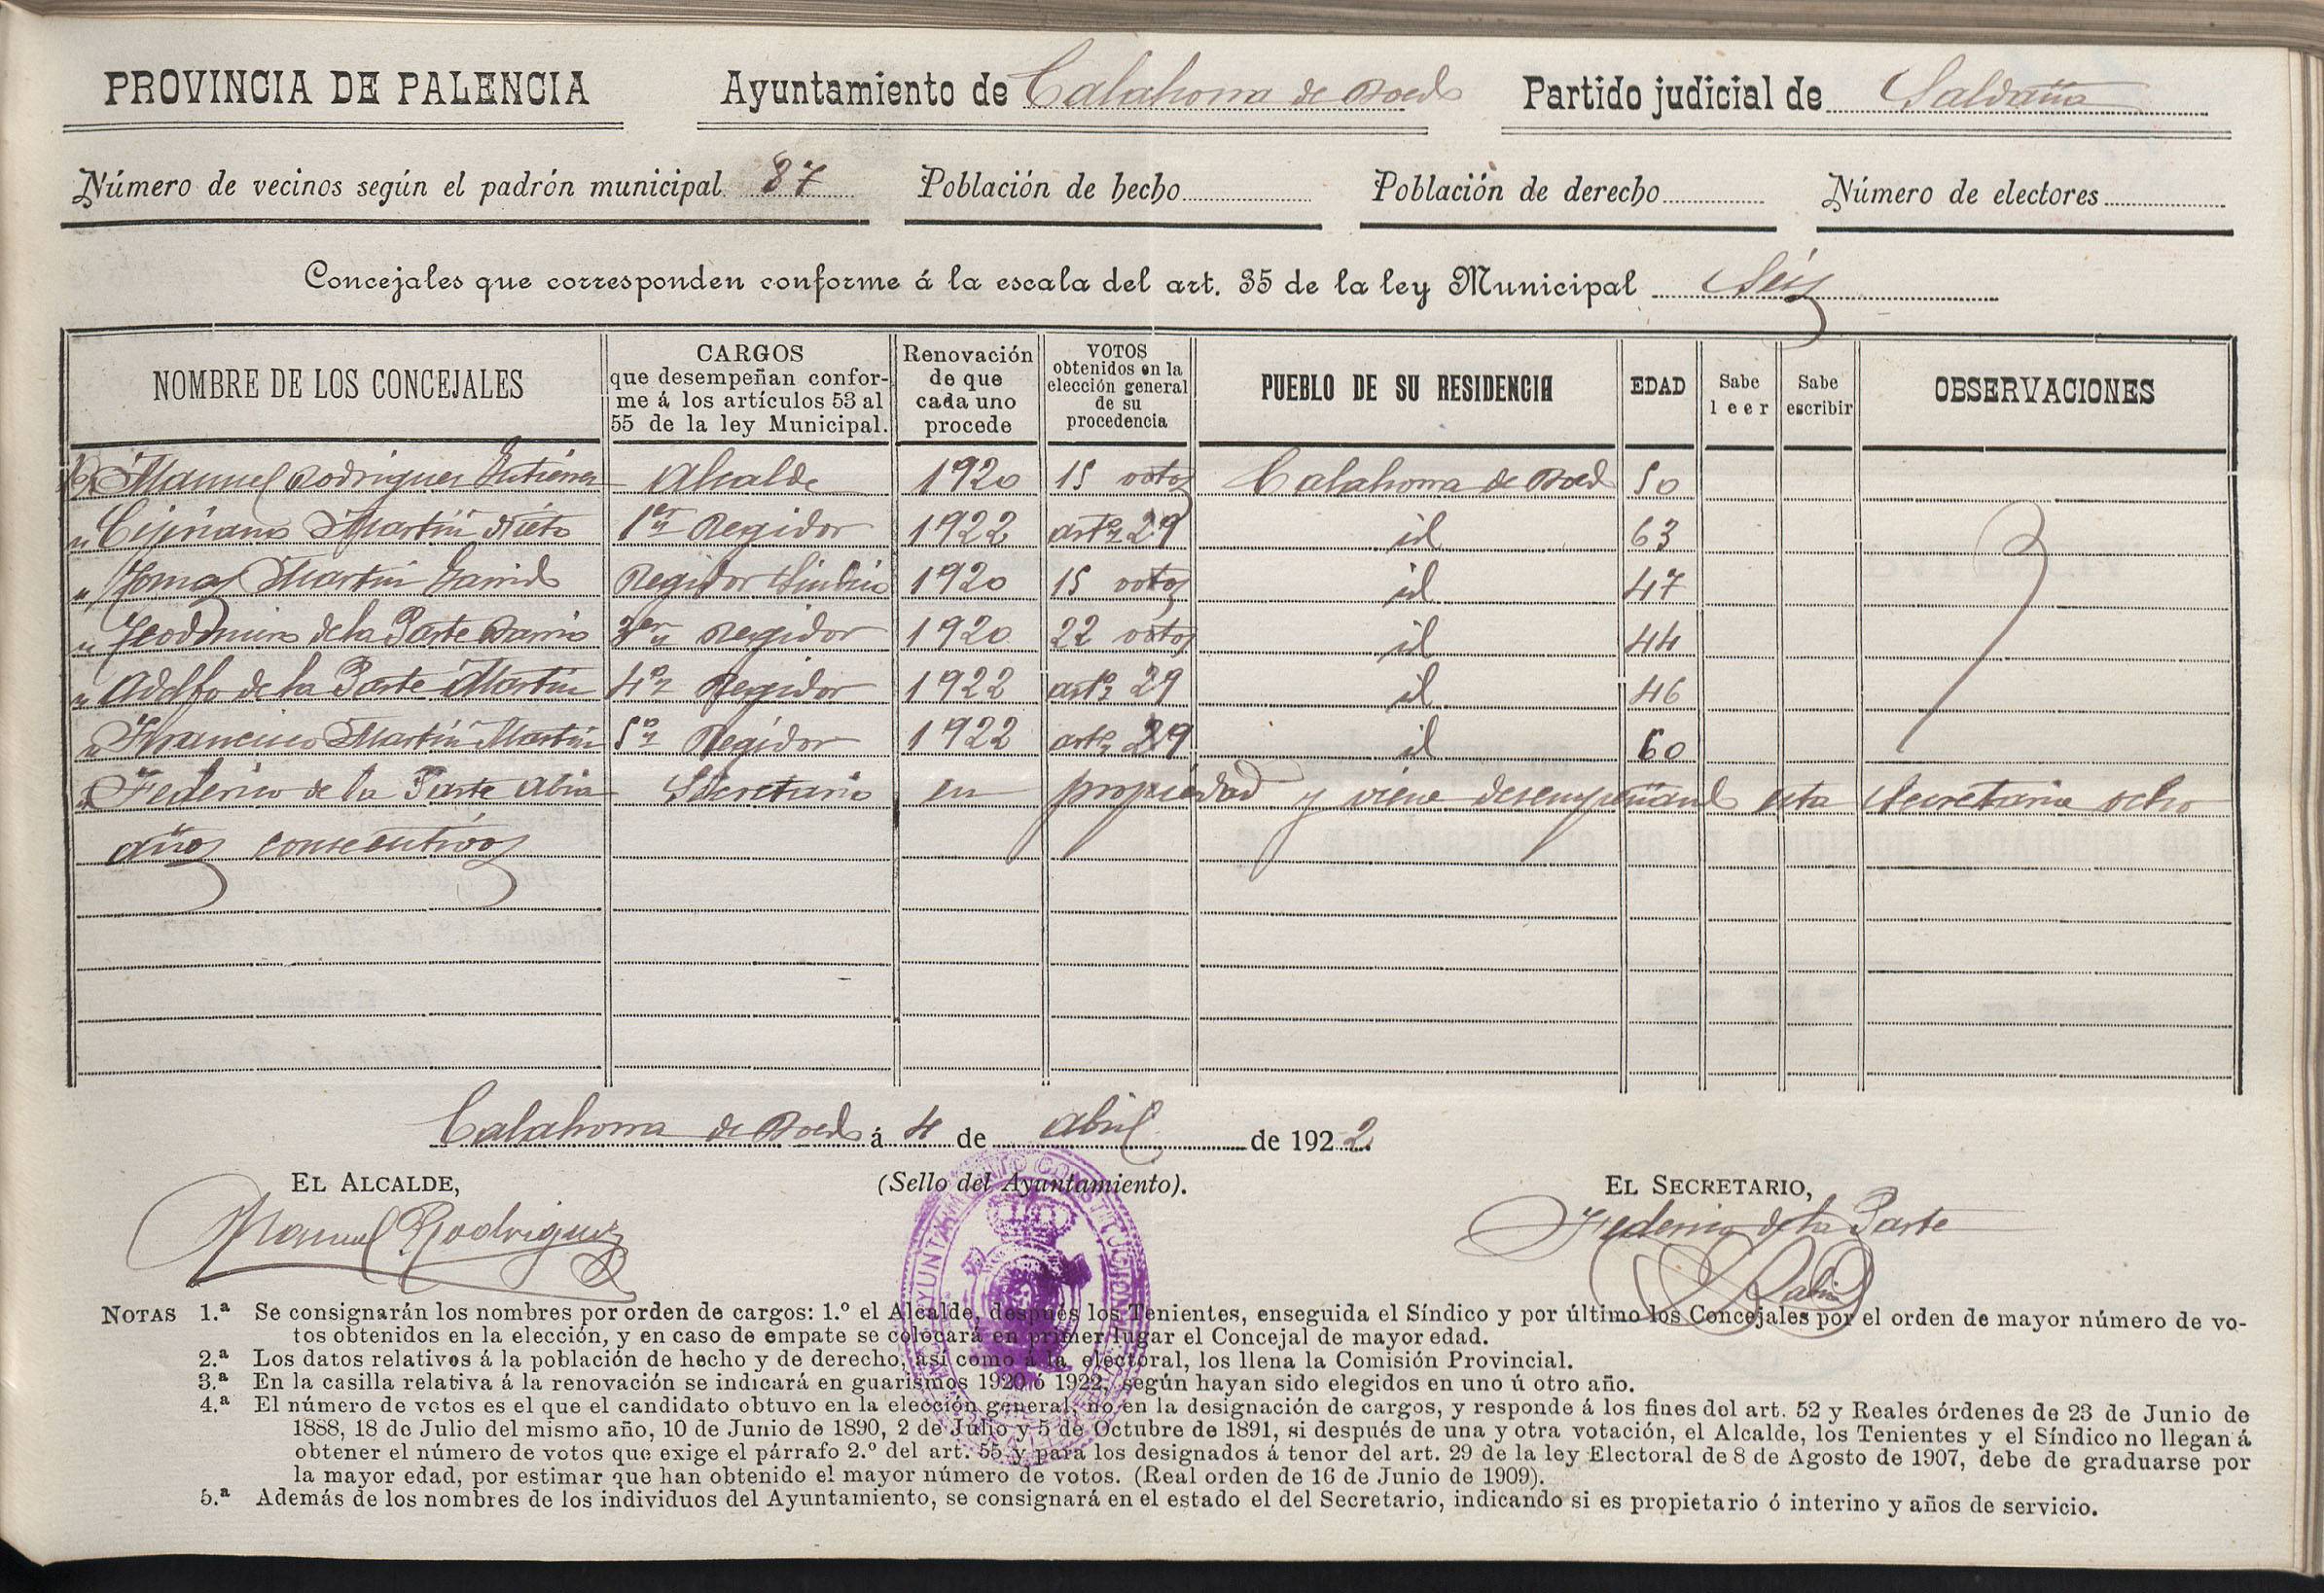 PROVINCIA DE PALENCIA Ayuntamiento de Calahorra de Boedo Partido judicial de Saldaña
Número de vecinos según el padrón municipal 87 Población de hecho Población de derecho Número de electores
Concejales que corresponden conforme á la escala del art. 35 de la ley Municipal Séis
NOMBRE DE LOS CONCEJALES CARGOS que desempeñan confor-me á los artículos 53 al 55 de la ley Municipal. Renovación de que cada uno procede VOTOS obtenidos en la elección general de su procedencia PUEBLO DE SU RESIDENCIA EDAD Sabe leer Sabe escribir OBSERVACIONES
Dn Manuel Rodriguez Gutiérrez Alcalde 1920 15 votos Calahorra de Boedo 50
" Cipriano Martín Nieto 1er Regidor 1922 arto 29 id 63
" Tomas Martín Garrido Regidor Sindico 1920 15 votos id 47
" Teodomiro de la Parte Barrio 3er Regidor 1920 22 votos id 44
" Adolfo de la Parte Martín 4o Regidor 1922 arto 29 id 46
" Francisco Martín Martín 5o Regidor 1922 arto 29 id 60
" Federico de la Parte Abia Secretario en propiedad y viene desempeñando esta Secretaria ocho
años consecutivos
Calahorra de Boedo á 4 de Abril de 1922.
EL ALCALDE, (Sello del Ayuntamiento). EL SECRETARIO,
Manuel Rodriguez Federico de la Parte
Abia
AYUNTAMIENTO CONSTITUCIONAL
NOTAS 1.ª Se consignarán los nombres por orden de cargos: 1.º el Alcalde, después los Tenientes, enseguida el Síndico y por último los Concejales por el orden de mayor número de vo-
tos obtenidos en la elección, y en caso de empate se colocará en primer lugar el Concejal de mayor edad.
2.ª Los datos relativos á la población de hecho y de derecho, así como á la electoral, los llena la Comisión Provincial.
3.ª En la casilla relativa á la renovación se indicará en guarismos 1920 ó 1922, según hayan sido elegidos en uno ú otro año.
4.ª El número de votos es el que el candidato obtuvo en la elección general; no en la designación de cargos, y responde á los fines del art. 52 y Reales órdenes de 23 de Junio de
1888, 18 de Julio del mismo año, 10 de Junio de 1890, 2 de Julio y 5 de Octubre de 1891, si después de una y otra votación, el Alcalde, los Tenientes y el Síndico no llegan á
obtener el número de votos que exige el párrafo 2.º del art. 55 y para los designados á tenor del art. 29 de la ley Electoral de 8 de Agosto de 1907, debe de graduarse por
la mayor edad, por estimar que han obtenido el mayor número de votos. (Real orden de 16 de Junio de 1909).
5.ª Además de los nombres de los individuos del Ayuntamiento, se consignará en el estado el del Secretario, indicando si es propietario ó interino y años de servicio.